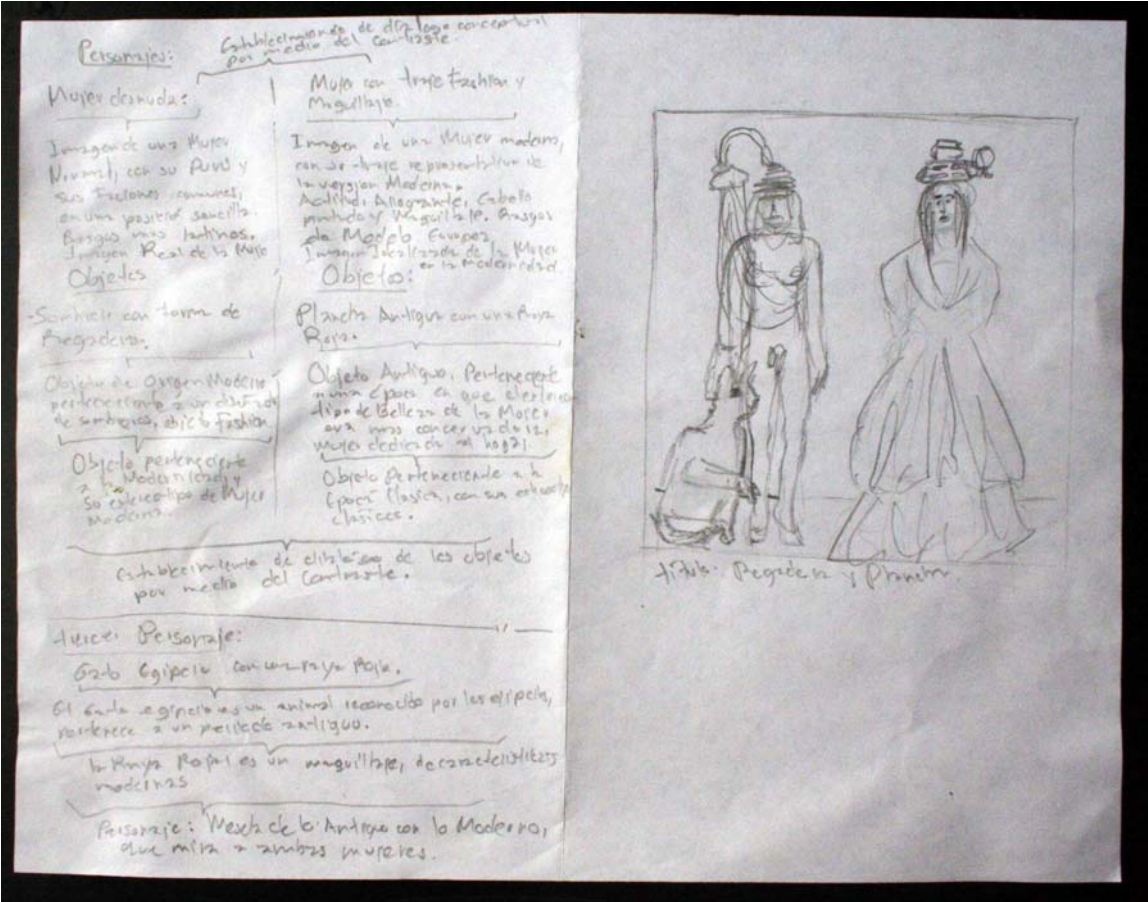 Personajes:
Establecimiento de dialogo conceptual
por medio del Contraste.
Mujer desnuda:
Imagen de una Mujer
Normal, con su
sus facciones comunes,
en una posición sencilla.
Rasgos mas latinos.
Imagen Real de la Mujer
Objetos
-Sombrero con forma de
Regadera.
Objeto de Origen Moderno
perteneciente a un diseño de
de sombreros, objeto Fashion
Objeto perteneciente
a la Modernidad y
Su estereotipo de Mujer
Moderna.
Mujer con traje Fashion y
Maquillaje.
Imagen de una Mujer moderna,
con su traje representativo de
la version Moderna.
Actitud Arrogante, Cabello
pintado y Maquillaje. Rasgos
de Modelo Europea
Imagen Idealizada de la Mujer
en la Modernidad
Objetos:
Plancha Antigua con una Raya
Roja.
Objeto Antiguo, Perteneciente
a una época en que el estereo
tipo de Belleza de la Mujer
era mas conservadora,
mujer dedicada al hogar
Objeto Perteneciente a la
Epoca Clasica, con sus
clasicos.
Establecimiento de dialogo de los objetos
por medio del Contraste.
tercer Personaje:
Gato Egipcio con una raya Roja.
El Gato egipcio es un animal reconocido por los egipcios,
pertenece a un periodo antiguo.
la Raya Roja es un maquillaje, de caracteristicas
modernas
Personaje: Mezcla de lo Antiguo con lo Moderno,
que mira a ambas mujeres.
titulo: Regadera y Plancha.